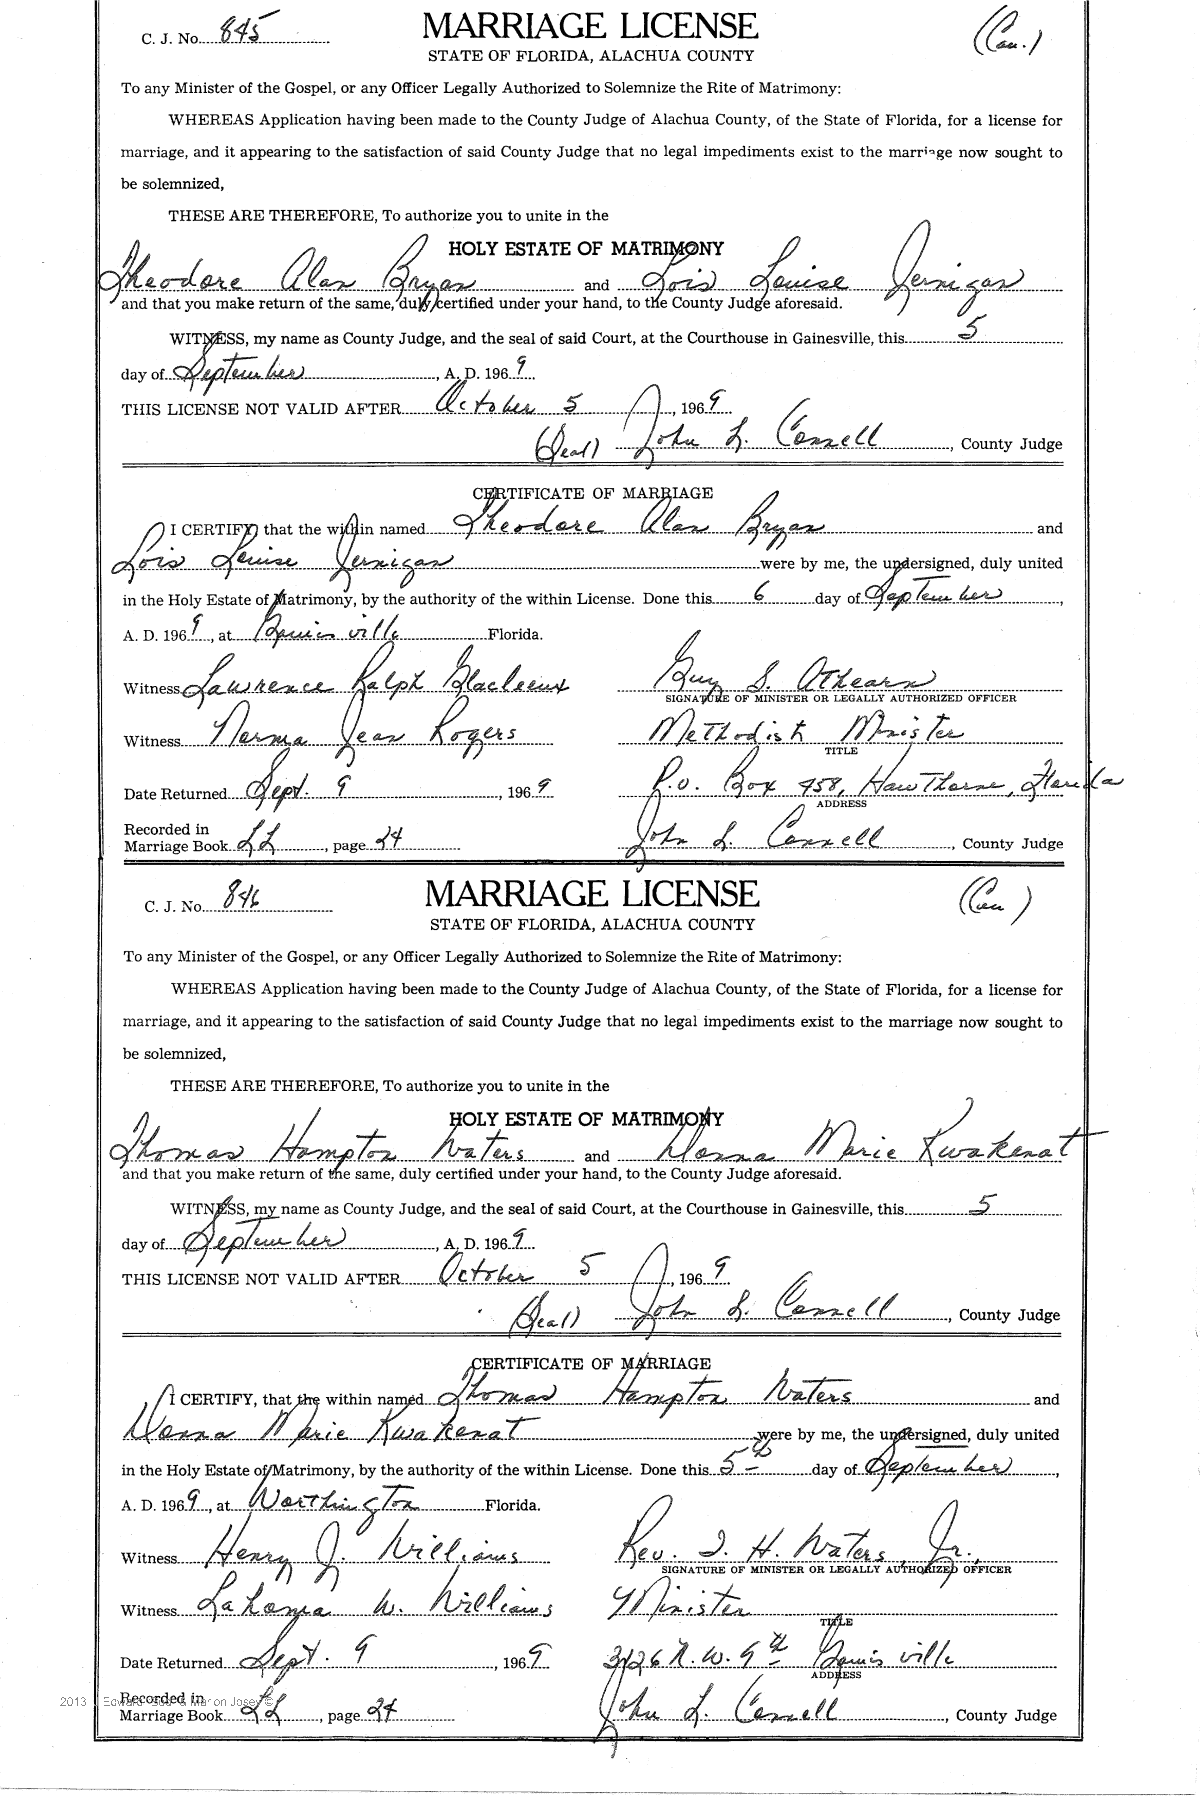 C. J. No. 845 MARRIAGE LICENSE (Cau.)
STATE OF FLORIDA, ALACHUA COUNTY
To any Minister of the Gospel, or any Officer Legally Authorized to Solemnize the Rite of Matrimony:
WHEREAS Application having been made to the County Judge of Alachua County, of the State of Florida, for a license for
marriage, and it appearing to the satisfaction of said County Judge that no legal impediments exist to the marriage now sought to
be solemnized,
THESE ARE THEREFORE, To authorize you to unite in the
HOLY ESTATE OF MATRIMONY
Theodore Alan Bryan and Lois Louise Jernigan
and that you make return of the same, duly certified under your hand, to the County Judge aforesaid.
WITNESS, my name as County Judge, and the seal of said Court, at the Courthouse in Gainesville, this 5
day of September, A. D. 1969
THIS LICENSE NOT VALID AFTER October 5, 1969
(Seal) John L. Connell, County Judge
CERTIFICATE OF MARRIAGE
I CERTIFY, that the within named Theodore Alan Bryan and
Lois Louise Jernigan were by me, the undersigned, duly united
in the Holy Estate of Matrimony, by the authority of the within License. Done this 6 day of September,
A. D. 1969, at Gainesville Florida.
Witness Lawrence Ralph Guy S. Athearn
SIGNATURE OF MINISTER OR LEGALLY AUTHORIZED OFFICER
Witness Norma Jean Rogers Methodist Minister
TITLE
Date Returned Sept. 9, 1969 P.O. Box 458, Hawthorne, Florida
ADDRESS
Recorded in
Marriage Book LL, page 24 John L. Connell, County Judge
C. J. No. 846 MARRIAGE LICENSE (Cau)
STATE OF FLORIDA, ALACHUA COUNTY
To any Minister of the Gospel, or any Officer Legally Authorized to Solemnize the Rite of Matrimony:
WHEREAS Application having been made to the County Judge of Alachua County, of the State of Florida, for a license for
marriage, and it appearing to the satisfaction of said County Judge that no legal impediments exist to the marriage now sought to
be solemnized,
THESE ARE THEREFORE, To authorize you to unite in the
HOLY ESTATE OF MATRIMONY
Thomas Hampton Waters and Donna Marie Kwakenat
and that you make return of the same, duly certified under your hand, to the County Judge aforesaid.
WITNESS, my name as County Judge, and the seal of said Court, at the Courthouse in Gainesville, this 5
day of September, A. D. 1969
THIS LICENSE NOT VALID AFTER October 5, 1969
(Seal) John L. Connell, County Judge
CERTIFICATE OF MARRIAGE
I CERTIFY, that the within named Thomas Hampton Waters and
Donna Marie Kwakenat were by me, the undersigned, duly united
in the Holy Estate of Matrimony, by the authority of the within License. Done this 5th day of September,
A. D. 1969, at Worthington Florida.
Witness Henry J. Williams Rev. T. H. Waters, Jr.,
SIGNATURE OF MINISTER OR LEGALLY AUTHORIZED OFFICER
Witness LaHoma W. Williams Minister
TITLE
Date Returned Sept. 9, 1969 3126 N.W. 9th Gainesville
ADDRESS
Recorded in
Marriage Book LL, page 24 John L. Connell, County Judge
2013